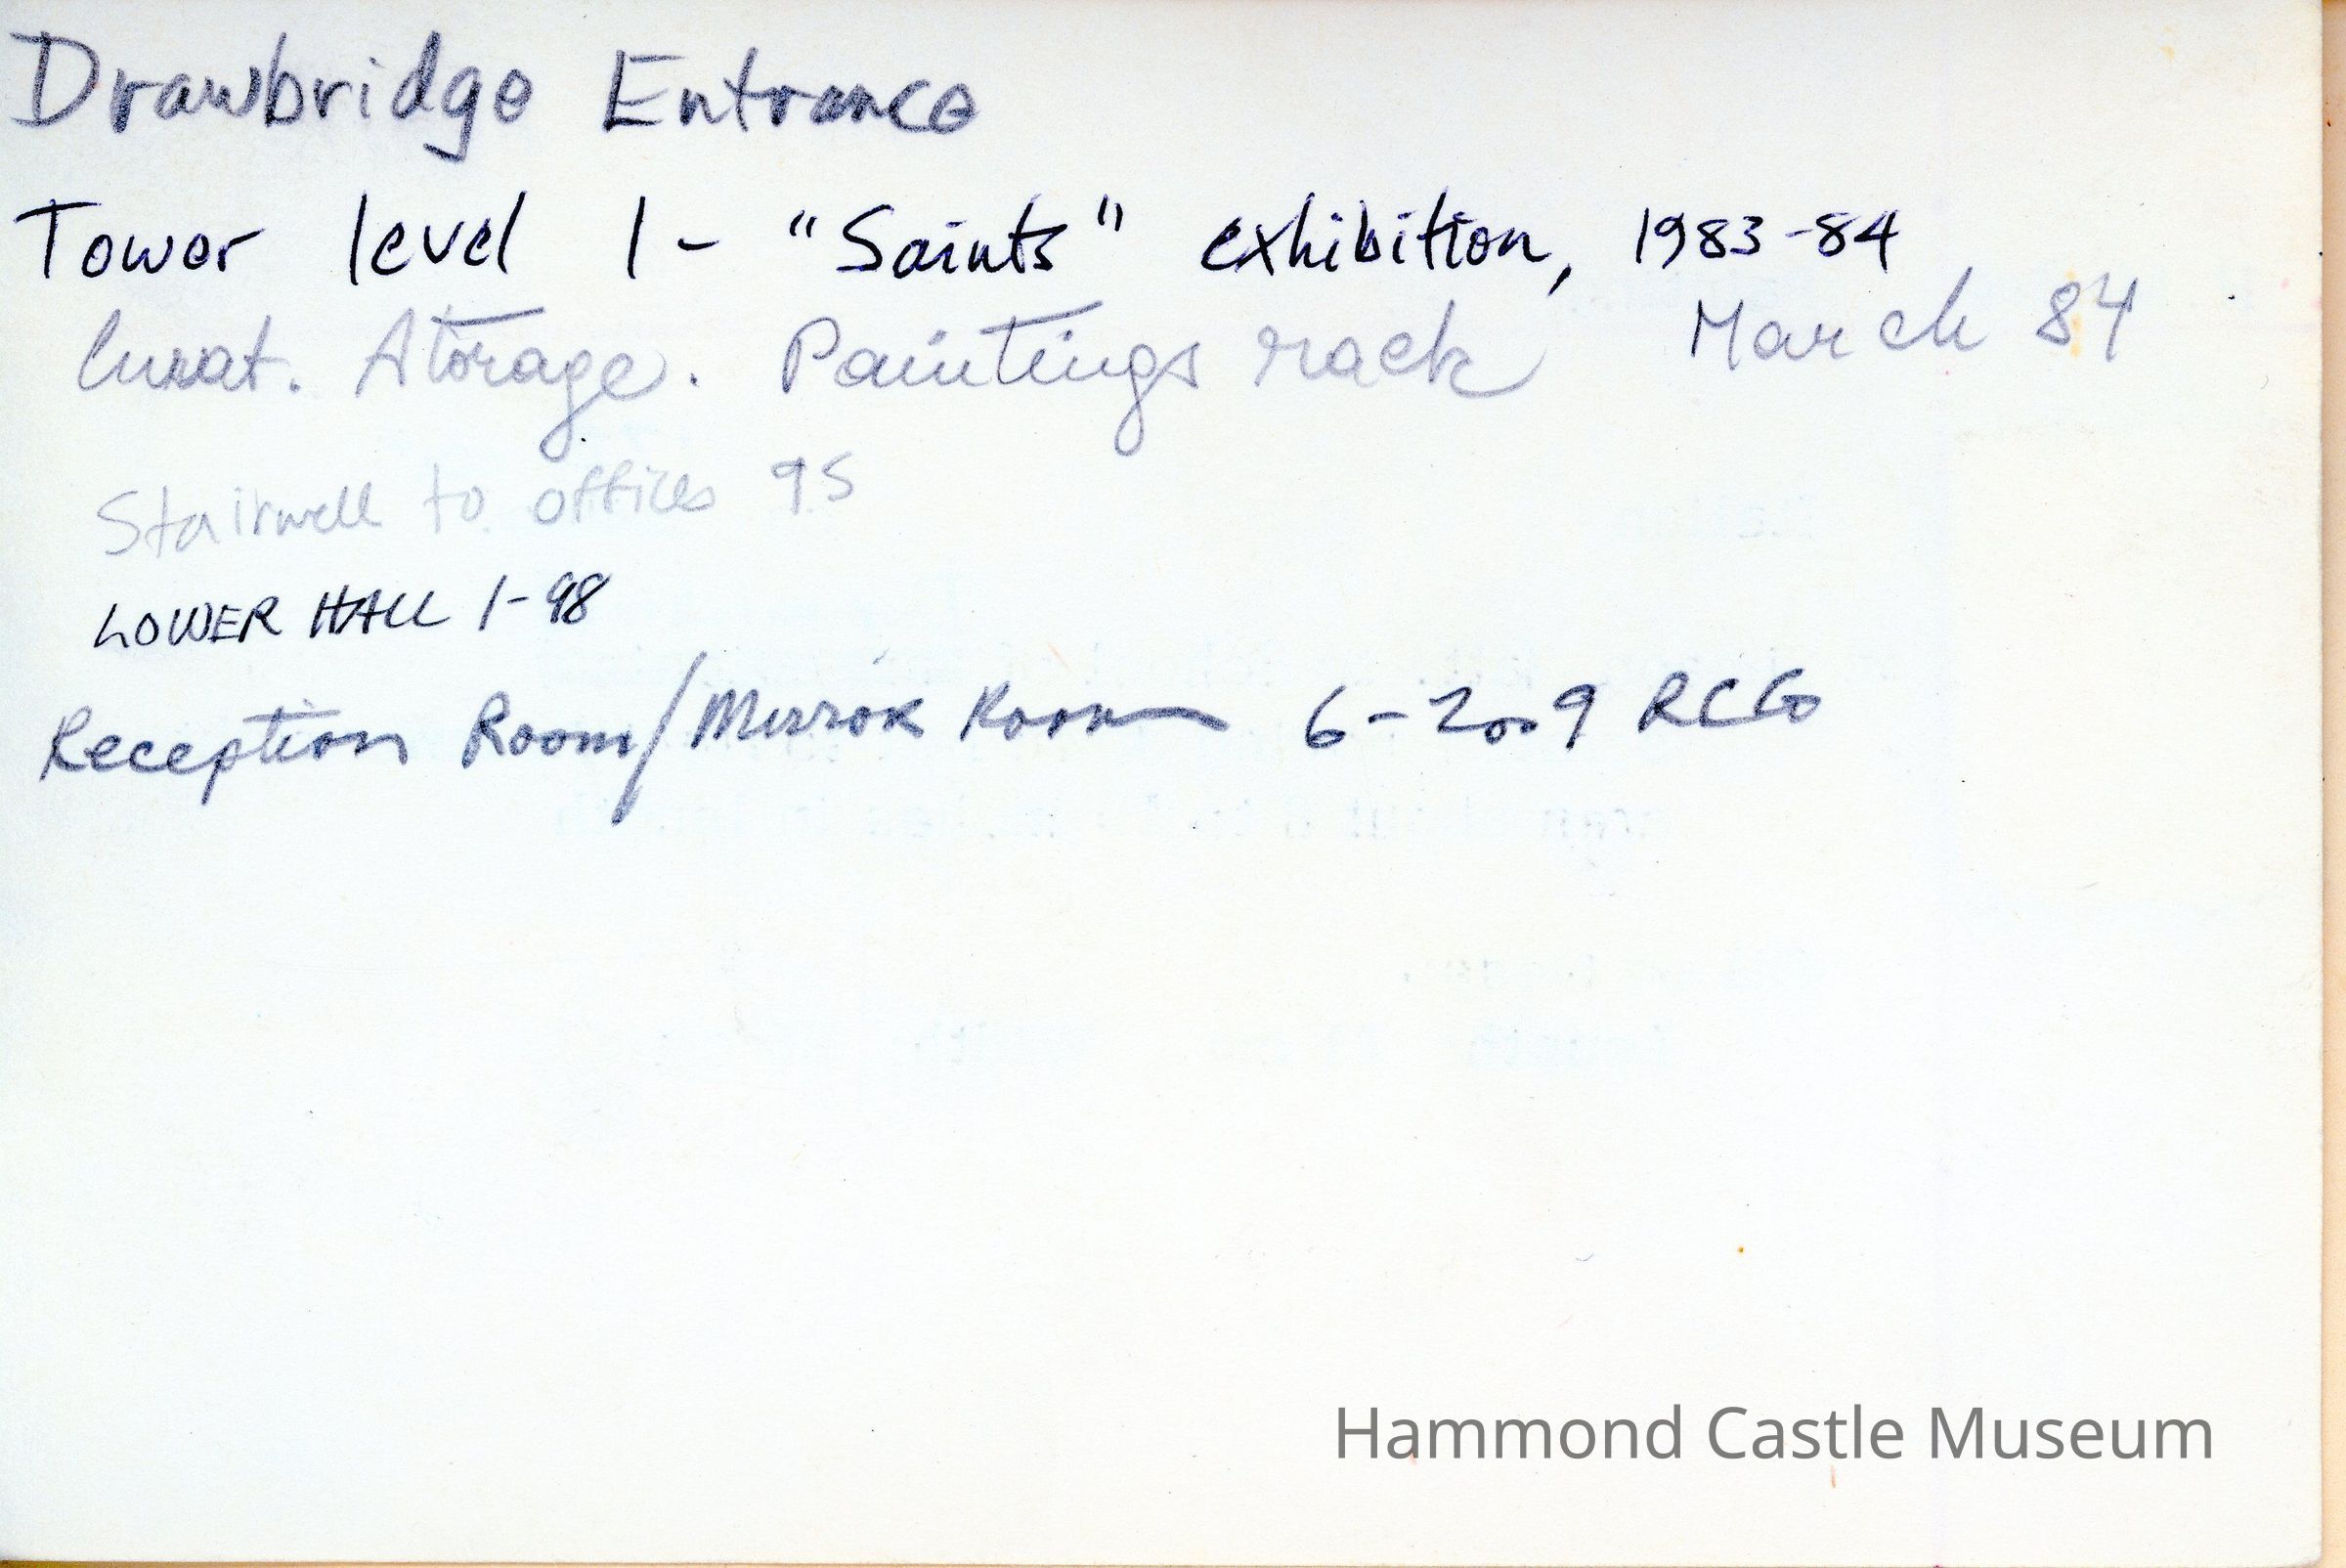 Drawbridge Entrance
Tower level 1 - "Saints" exhibition, 1983-84
Curat. Storage. Paintings rack March 84
Stairwell to offices 95
LOWER HALL 1-98
Reception Room/Mirror Room 6-2009 RCG
Hammond Castle Museum